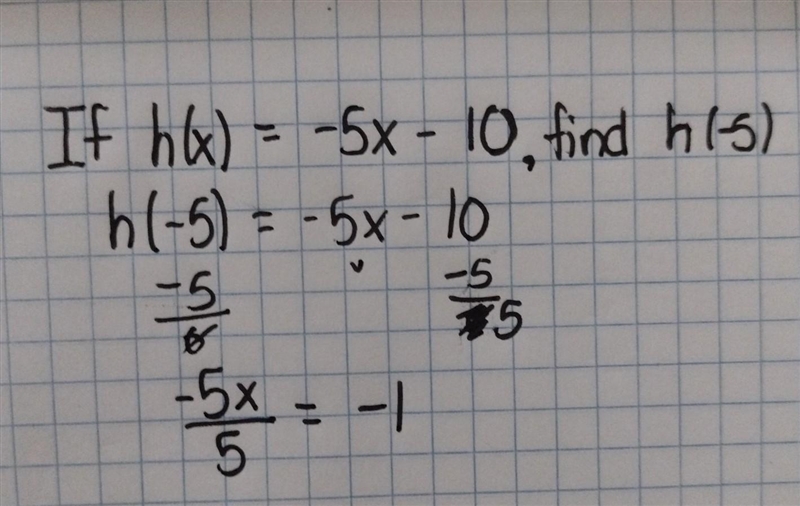 If h(x) = -5x - 10, find h(-5)
h(-5) = -5x - 10
-5 -5
5
-5x = -1
5